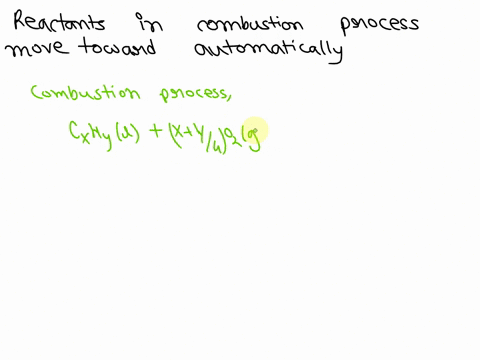 Reactants in combustion process
move toward automatically
Combustion process,
CxHy(l) + (x+y/4)O2(g